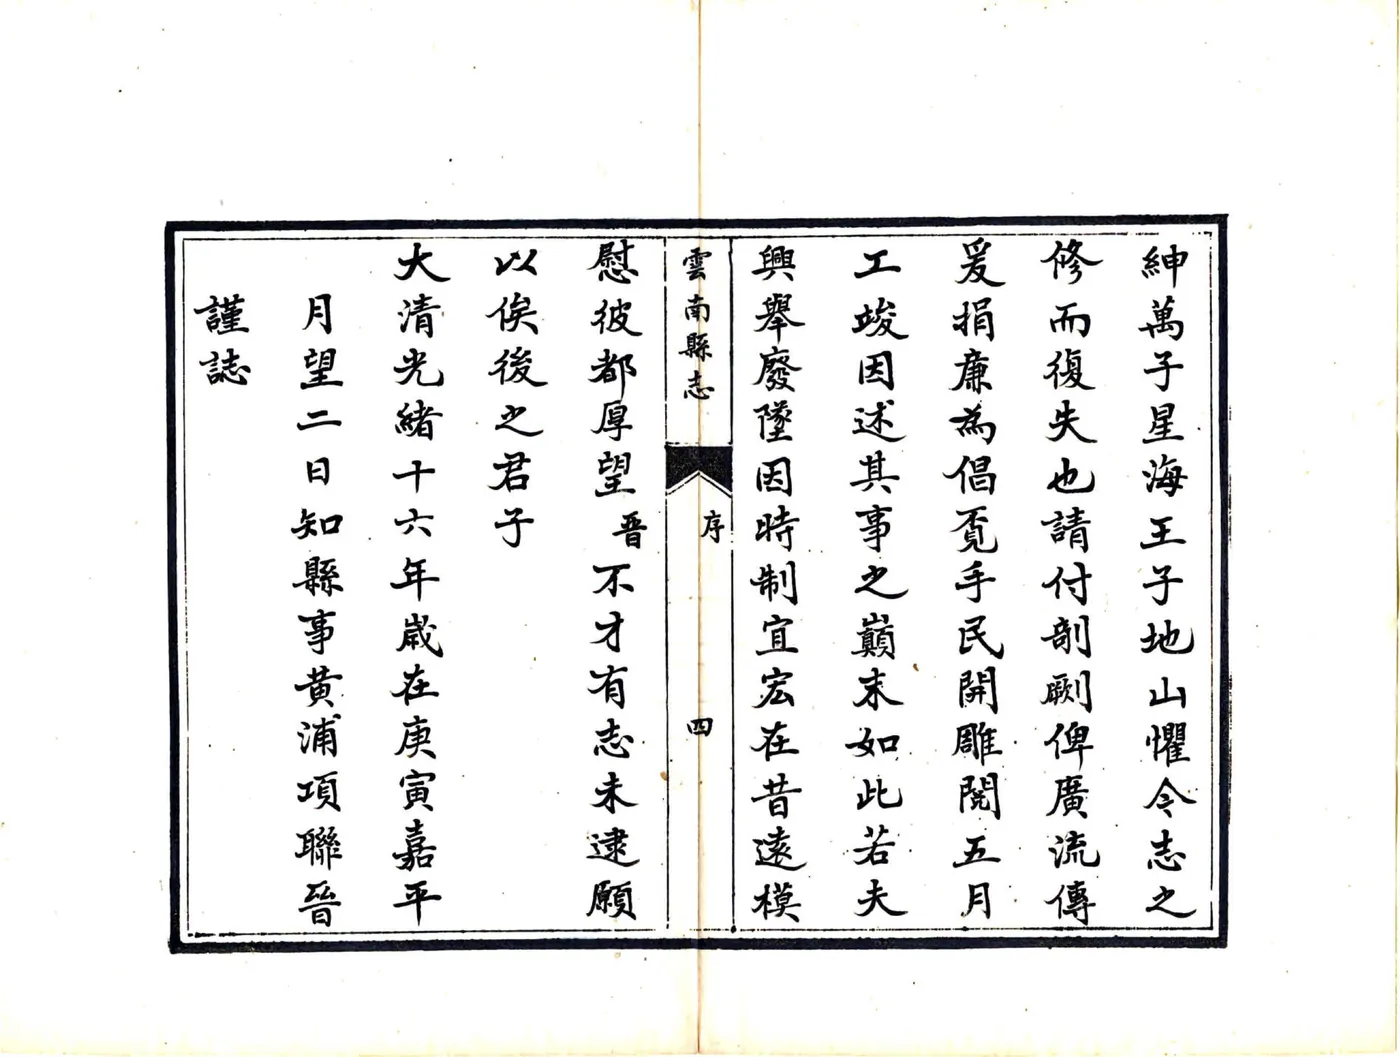 紳萬子星海王子地山懼令志之
修而復失也請付剞劂俾廣流傳
爰捐廉為倡覓手民開雕閱五月
工竣因述其事之巔末如此若夫
興舉廢墜因時制宜宏在昔遠模
雲南縣志
序
四
慰彼都厚望晉不才有志未逮願
以俟後之君子
大清光緒十六年歲在庚寅嘉平
月望二日知縣事黃浦項聯晉
謹誌